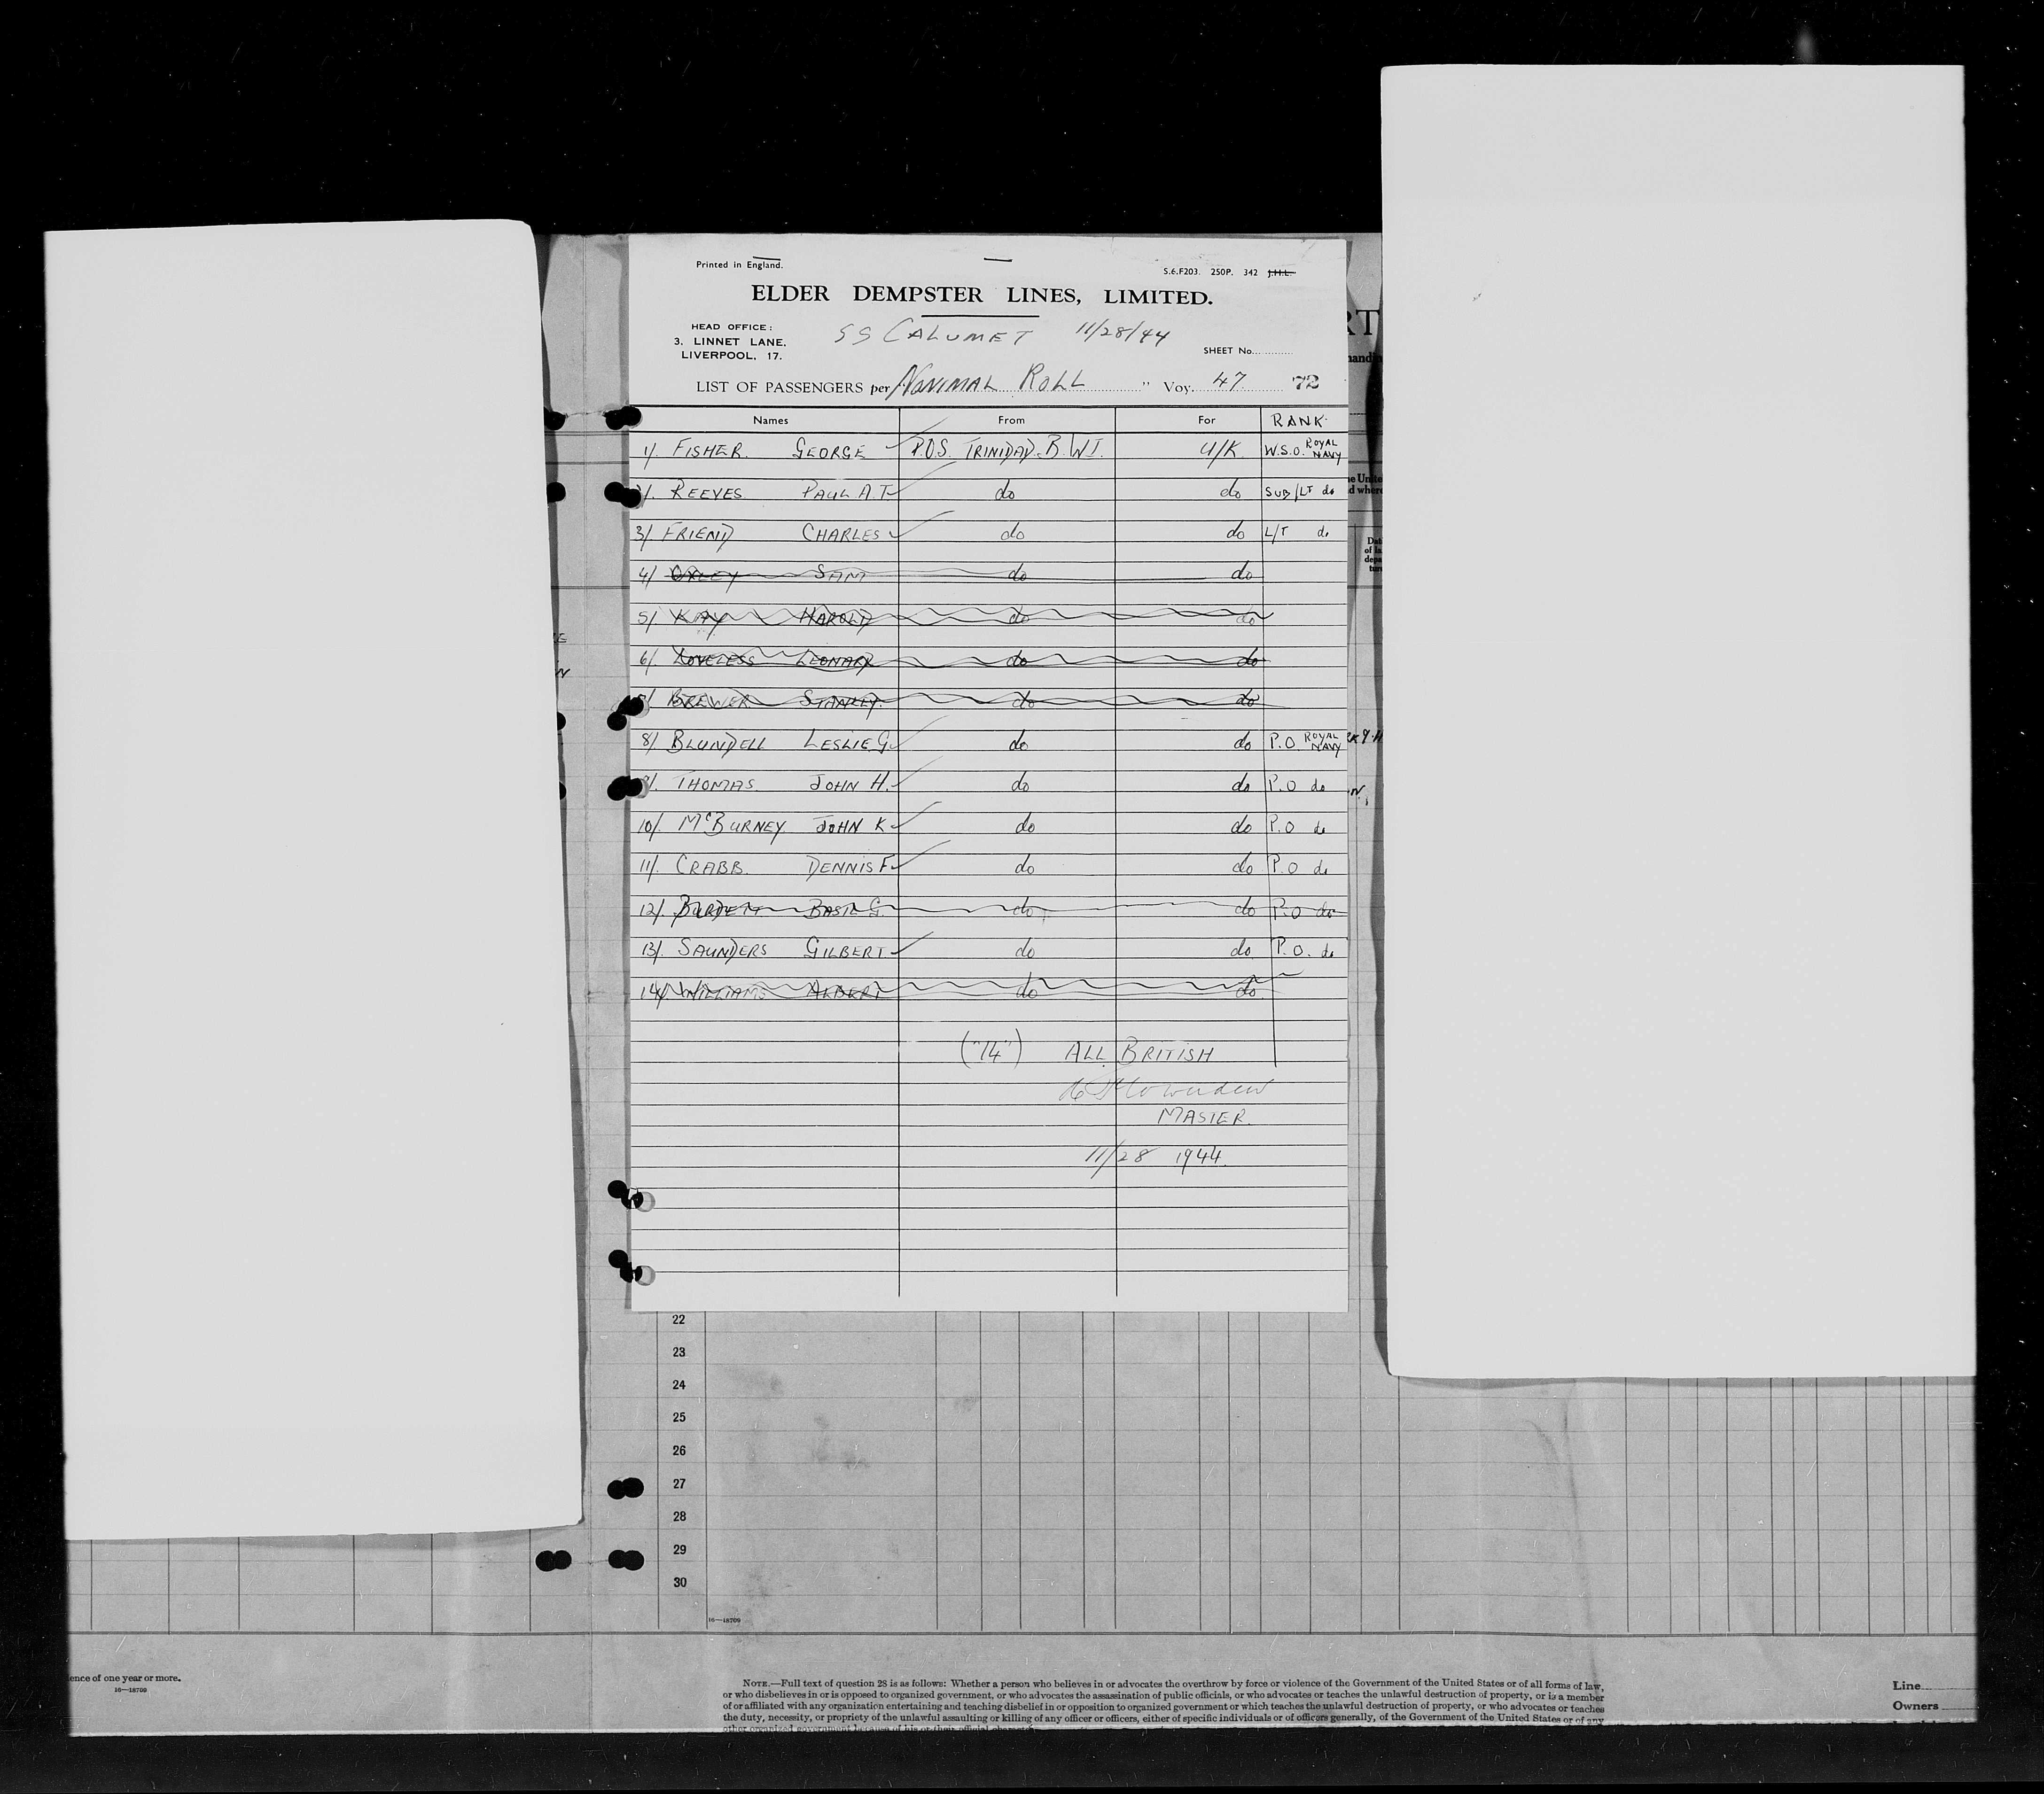 Printed in England.
S.6.F203. 250P. 342 J.H.L.
ELDER DEMPSTER LINES, LIMITED.
HEAD OFFICE:
3. LINNET LANE,
LIVERPOOL, 17.
SS CALUMET 11/28/44
SHEET No.
LIST OF PASSENGERS per NOMIMAL ROLL " Voy. 47 72
Names From For RANK
1/. FISHER. GEORGE P.O.S. TRINIDAD. B.W.I. U/K. W.S.O. ROYAL NAVY
/. REEVES PAUL A.T. do do SUB/LT do
3/ FRIEND CHARLES do do L/T do
4/ OXLEY SAM do do
5/ KAY HAROLD do do
6/ LOVELESS LEONARD do do
/ BREWER STANLEY. do do
8/. BLUNDELL LESLIE G. do do P.O. ROYAL NAVY
9/. THOMAS. JOHN H. do do P.O do
10/. McBURNEY. JOHN K do do P.O do
11/. CRABB. DENNIS F. do do P.O do
12/. BURDETT BASIL G. do do P.O do
13/. SAUNDERS GILBERT do do P.O. do
14/ WILLIAMS ALBERT do do
("14") ALL BRITISH
MASTER.
11/28 1944.
22
23
24
25
26
27
28
29
30
16—18709
ence of one year or more.
16—18709
NOTE.—Full text of question 28 is as follows: Whether a person who believes in or advocates the overthrow by force or violence of the Government of the United States or of all forms of law,
or who disbelieves in or is opposed to organized government, or who advocates the assassination of public officials, or who advocates or teaches the unlawful destruction of property, or is a member
of or affiliated with any organization entertaining and teaching disbelief in or opposition to organized government or which teaches the unlawful destruction of property, or who advocates or teaches
the duty, necessity, or propriety of the unlawful assaulting or killing of any officer or officers, either of specific individuals or of officers generally, of the Government of the United States or of any
other organized government because of his or their official character.
Line
Owners